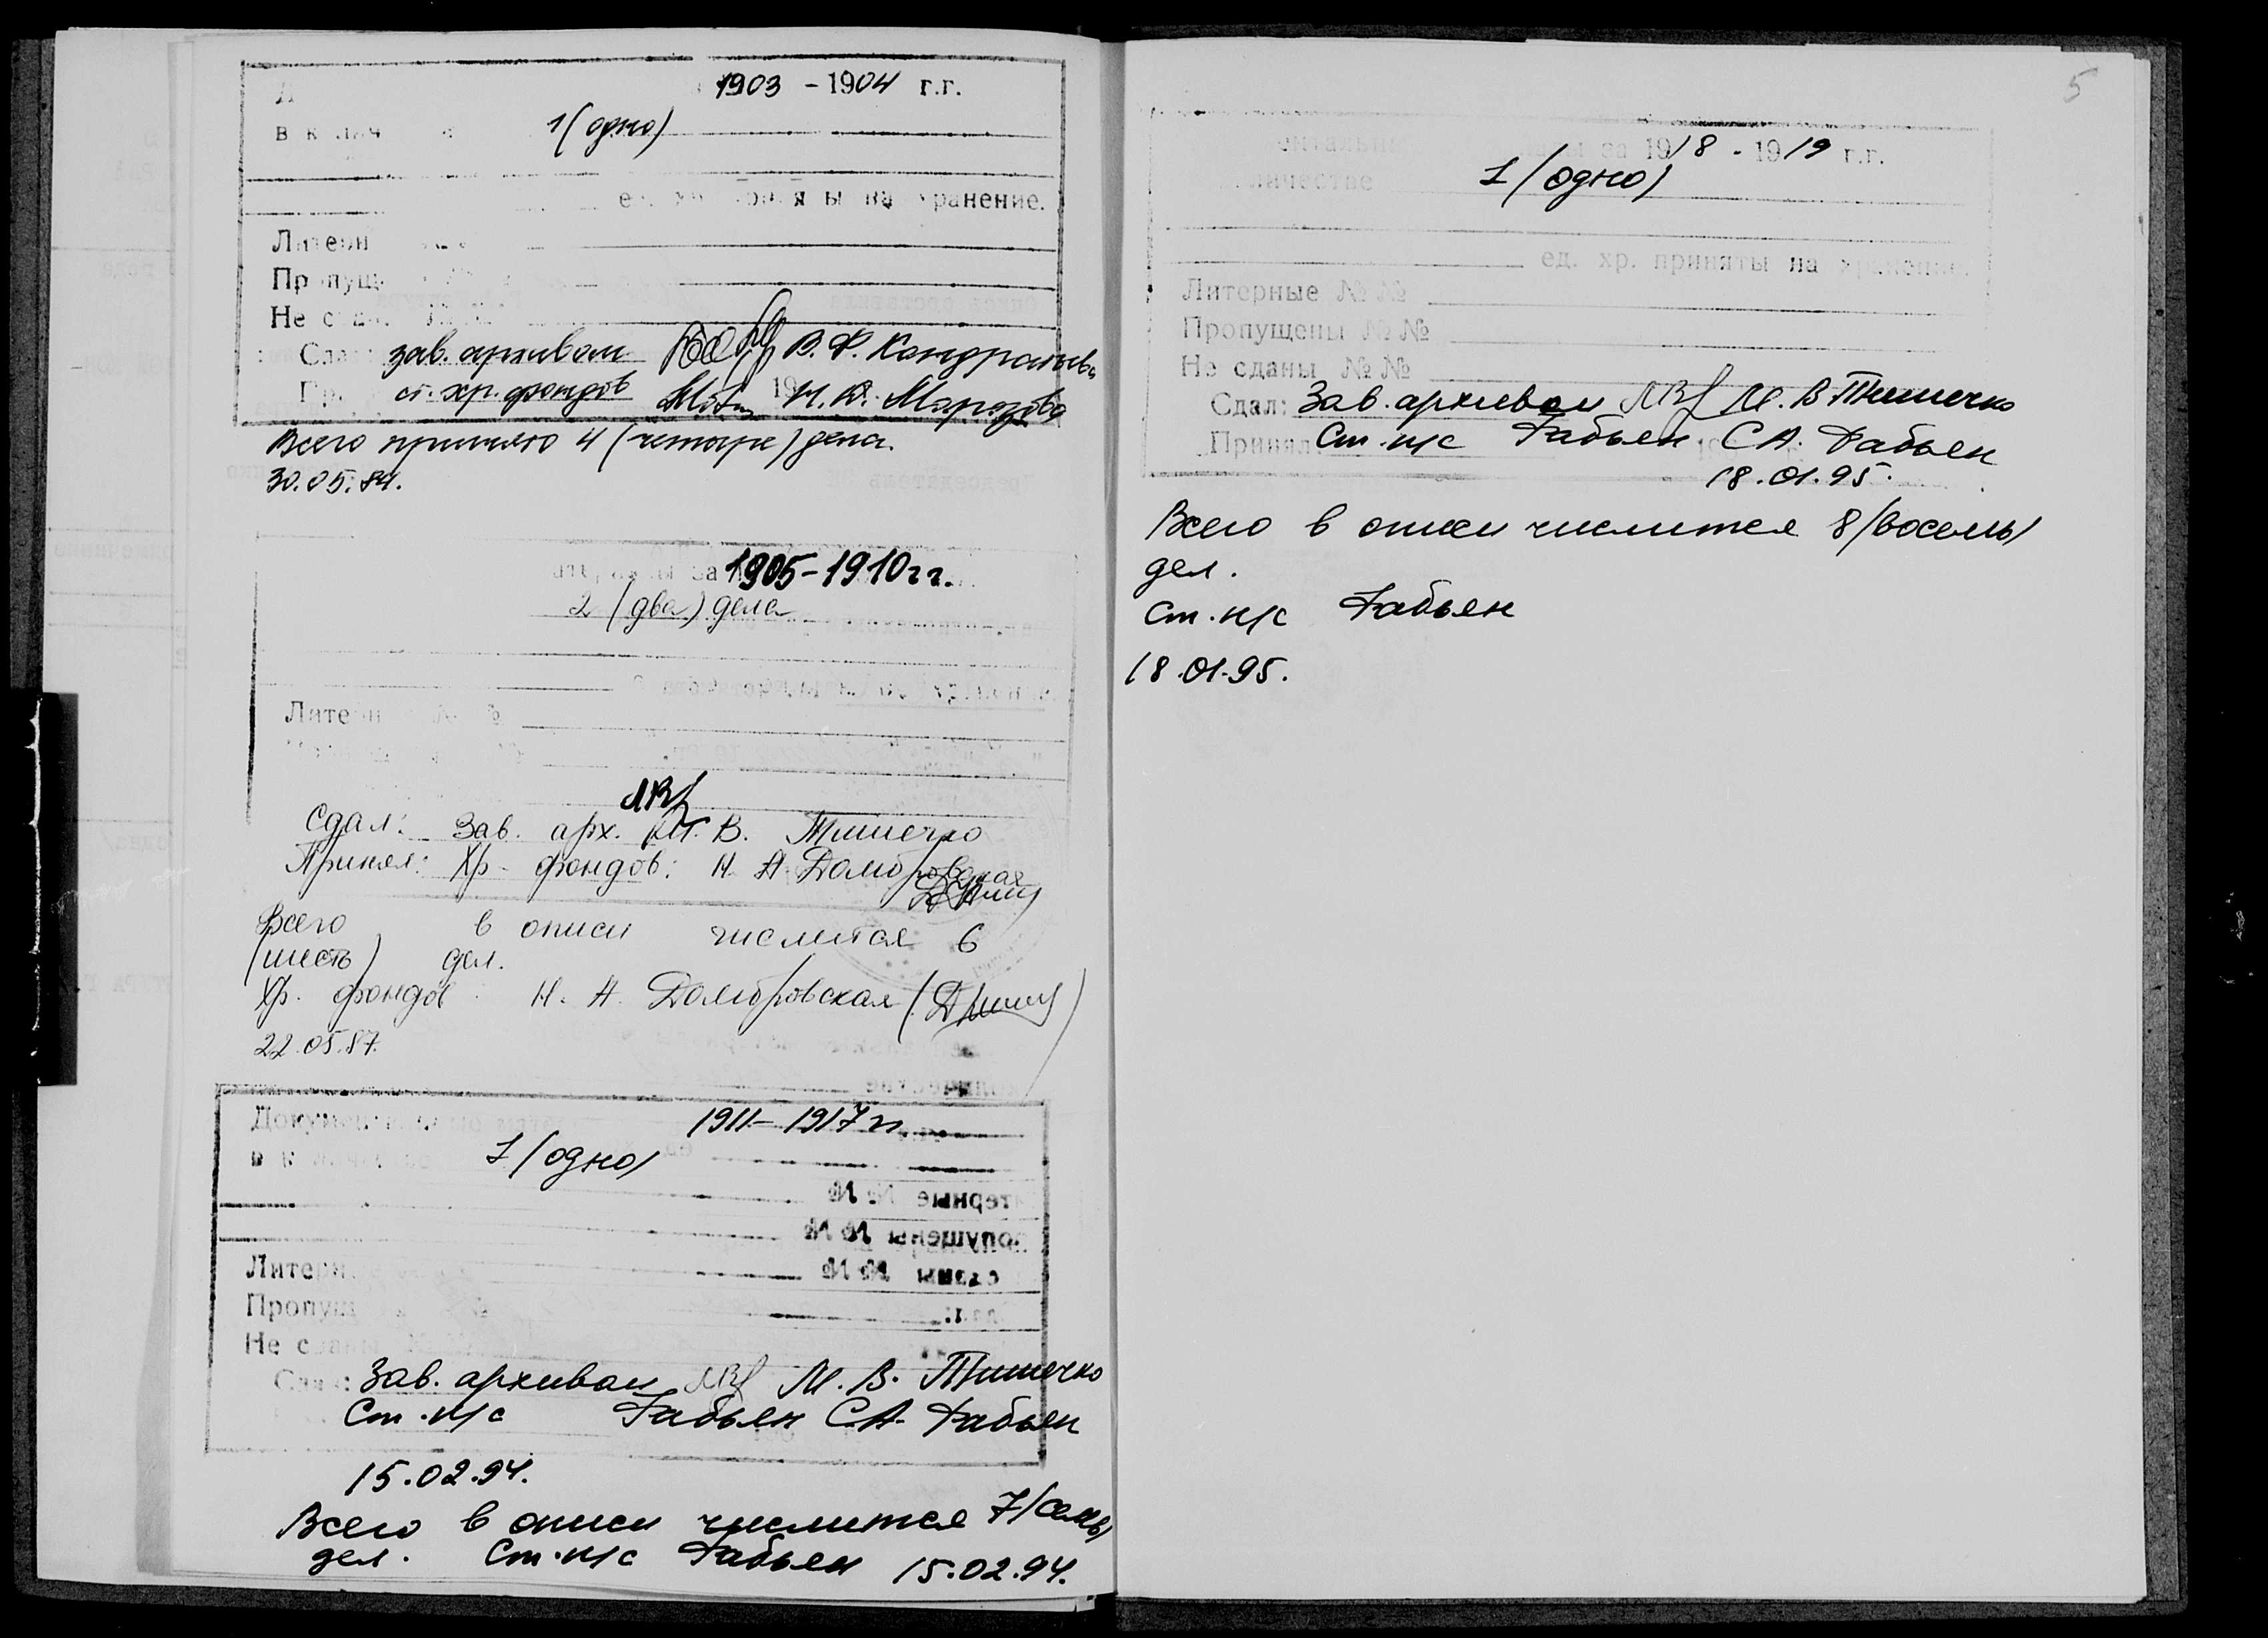 1903 - 1904 г.г.
1 (одно)
хранение.
Не
зав. архивом В. Ф. Кондратьева
ст. хр. фондов Н. Морозова
Всего принято 4 (четыре) дела.
30.05.84.
за 1905-1910 гг.
2 (два) дела
Сдал: Зав. арх. М. В. Тишечко
Принял: Хр. фондов: Н. А. Домбровская
Всего в описи числится 6
(шесть) дел.
Хр. фондов Н. А. Домбровская
22.05.87.
1911-1917 гг.
1 (одно)
Не
Зав. архивом М. В. Тишечко
Ст. н/с Фабьен С.А. Фабьен
15.02.94.
Всего в описи числится 7 (семь)
дел. Ст. н/с Фабьен 15.02.94.
5
за 1918 - 1919 г.г.
1 (одно)
ед. хр. приняты на хранение.
Литерные №№
Пропущены №№
Не сданы №№
Сдал: Зав. архивом М. В. Тишечко
Принял Ст. н/с Фабьен С.А. Фабьен
18.01.95.
Всего в описи числится 8 (восемь)
дел.
Ст. н/с Фабьен
18.01.95.